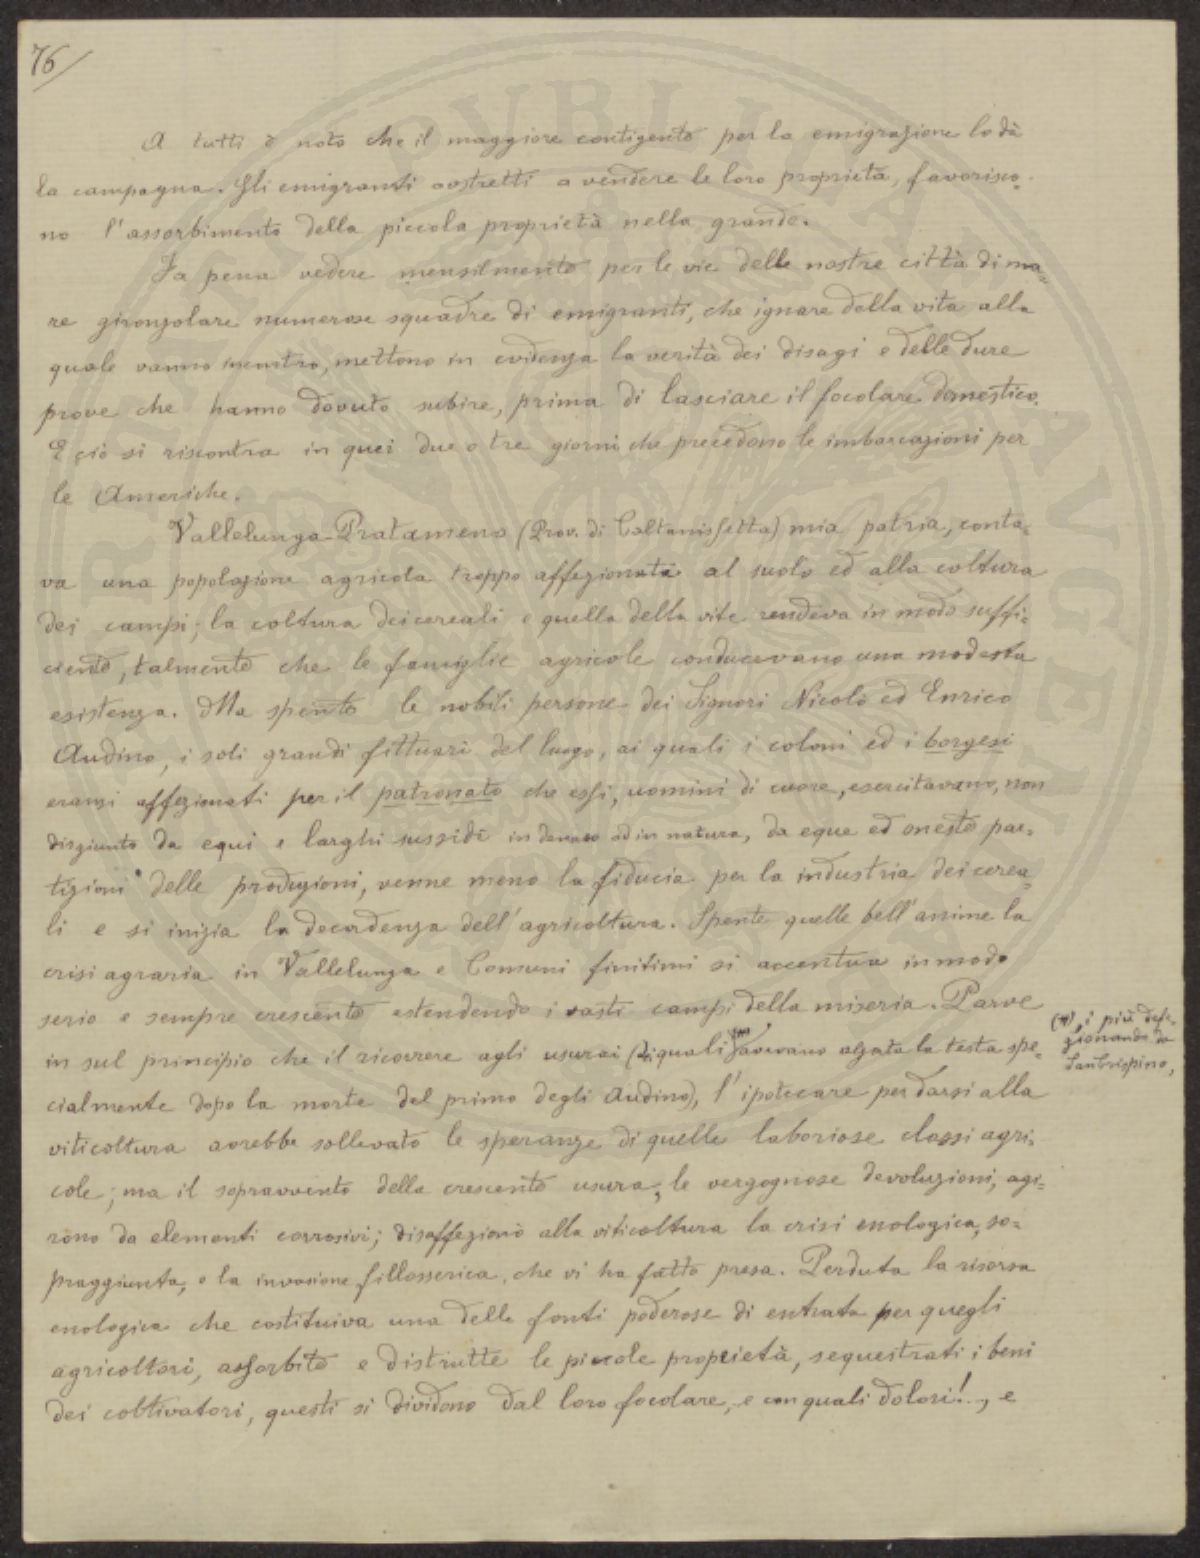 76/
A tutti è noto che il maggiore contigente per la emigrazione lo dà
la campagna. Gli emigranti costretti a vendere le loro proprietà, favorisco-
no l'assorbimento della piccola proprietà nella grande.
Fa pena vedere mensilmente per le vie delle nostre città di ma-
re gironzolare numerose squadre di emigranti, che ignare della vita alla
quale vanno incontro, mettono in evidenza la verità dei disagi e delle dure
prove che hanno dovuto subire, prima di lasciare il focolare domestico.
E ciò si riscontra in quei due o tre giorni che precedono le imbarcazioni per
le Americhe.
Vallelunga-Pratameno (Prov. di Caltanissetta) mia patria, conta-
va una popolazione agricola troppo affezionata al suolo ed alla coltura
dei campi; la coltura dei cereali e quella della vite rendeva in modo suffi-
ciente, talmente che le famiglie agricole conducevano una modesta
esistenza. Ma spente le nobili persone dei Signori Nicolò ed Enrico
Audino, i soli grandi fittuari del luogo, ai quali i coloni ed i borgesi
eransi affezionati per il patronato che essi, uomini di cuore, esercitavano, non
disgiunto da equi e larghi sussidi in denaro od in natura, da eque ed oneste par-
tizioni delle produzioni, venne meno la fiducia per la industria dei cerea-
li e si inizia la decadenza dell'agricoltura. Spente quelle bell'anime la
crisi agraria in Vallelunga e Comuni finitimi si accentua in modo
serio e sempre crescente estendendo i vasti campi della miseria. Parve
in sul principio che il ricorrere agli usurai (i quali avevano alzata la testa spe-
cialmente dopo la morte del primo degli Audino), l'ipotecare per darsi alla
viticoltura avrebbe sollevato le speranze di quelle laboriose classi agri-
cole; ma il sopravvento della crescente usura, le vergognose devoluzioni, agi-
rono da elementi corrosivi; disaffezionò alla viticoltura la crisi enologica, so-
praggiunta, e la invasione fillosserica, che vi ha fatto presa. Perduta la risorsa
enologica che costituiva una delle fonti poderose di entrata per quegli
agricoltori, assorbite e distrutte le piccole proprietà, sequestrati i beni
dei coltivatori, questi si dividono dal loro focolare, e con quali dolori!.., e
, i più defe-
zionando da
San Crispino,